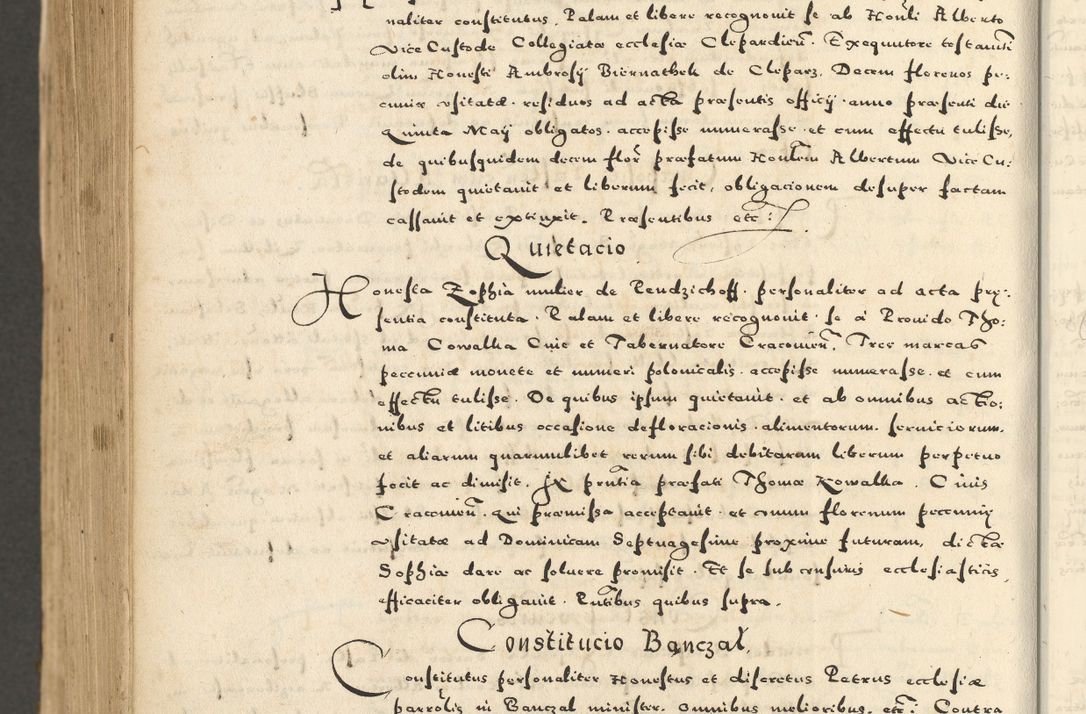 naliter constitutus. Palam et libere recognouit se ab Honli Alberto
Vice Custode Collegiatæ ecclesiæ Clepardien. Exequutore testamti
olim Honesti Ambrosij Biernathek de Cleparz, Decem florenos pe-
cuniæ vsitatæ. residuos ad acta præsentis officij anno præsenti die
quinta Maij obligatos. accepisse numerasse. et cum effectu tulisse,
de quibusquidem decem flor præfatum Honlem Albertum Vice Cu-
stodem quietauit et liberum fecit, obligacionem desuper factam
cassauit et extinxit. Præsentibus etc:
Quietacio
Honesta Zophia mulier de Rendzichoff. personaliter ad acta præ-
sentia constituta. Palam et libere recognouit se a Prouido Tho-
ma Cowalka Ciue et Tabernatore Cracouien. Tres marcas
peccuniæ monete et numeri polonicalis. accepisse numerasse. et cum
effectu tulisse. De quibus ipsum quietauit. et ab omnibus actio-
nibus et litibus occasione defloracionis. alimentorum. seruiciorum.
et aliarum quarumlibet rerum sibi debitarum liberum perpetuo
fecit ac dimisit. In pntia præfati Thomæ Kowalka. Ciuis
Cracouien. qui præmissa acceptauit. et unum florenum peccuniæ
vsitatæ ad Dominicam Septuagesime proxime futuram, dictæ
Sophiæ dare ac soluere promisit. Et se sub censuris ecclesiasticis,
efficaciter obligauit. Pntibus quibus supra.
Constitucio Banczal.
Constitutus personaliter Honestus et discretus Petrus ecclesiæ
parrolis in Banczal minister. omnibus melioribus. etc: Contra